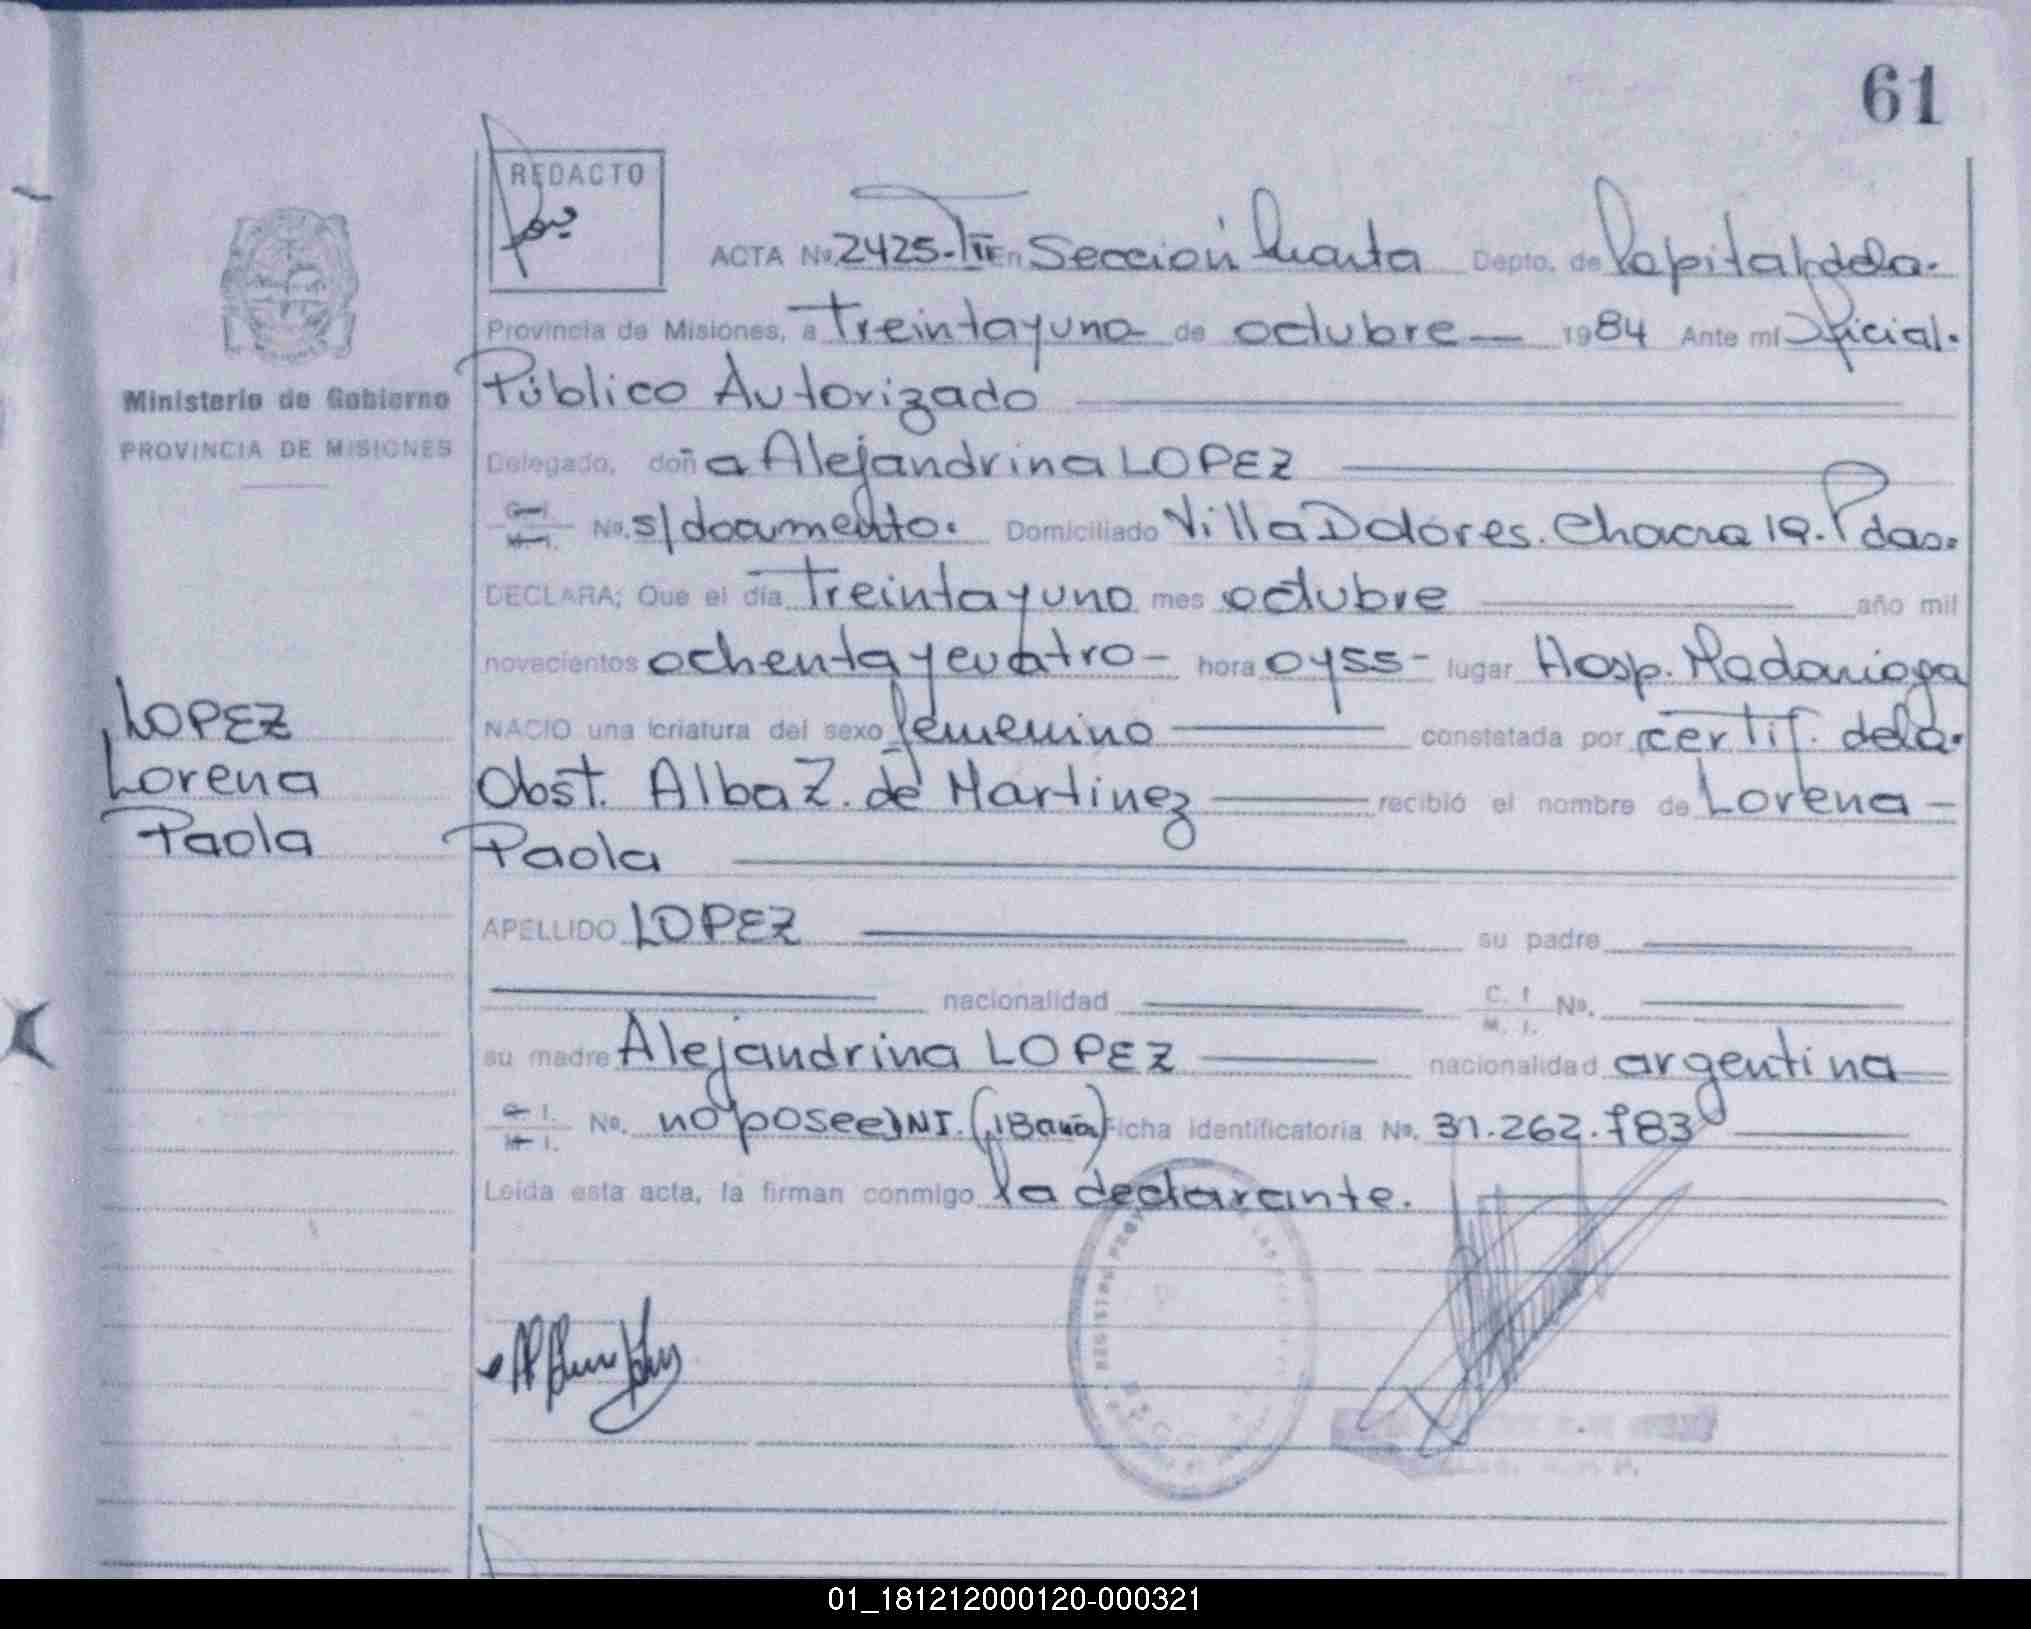 61
REDACTO
ACTA No. 2425-TºIII En Sección Cuarta Depto. de Capital, de la
Provincia de Misiones, a Treinta y uno de octubre — 1984 Ante mí Oficial
Público Autorizado
Ministerio de Gobierno
PROVINCIA DE MISIONES
Delegado, doña Alejandrina LOPEZ
C. I. M. I. No. s/documento. Domiciliado Villa Dolores. Chacra 19. Pdas.
DECLARA; Que el día Treinta y uno mes octubre año mil
novecientos ochenta y cuatro - hora 0y55 - lugar Hosp. Madariaga
NACIO una criatura del sexo femenino constatada por certif. de la
Obst. Alba Z. de Martinez recibió el nombre de Lorena -
Paola
LOPEZ
Lorena
Paola
APELLIDO LOPEZ su padre
nacionalidad C. I. M. I. No.
su madre Alejandrina LOPEZ nacionalidad argentina
C. I. M. I. No. no posee DNI. (18 años) Ficha identificatoria No. 31.262.783
Leída esta acta, la firman conmigo la declarante.
01_181212000120-000321